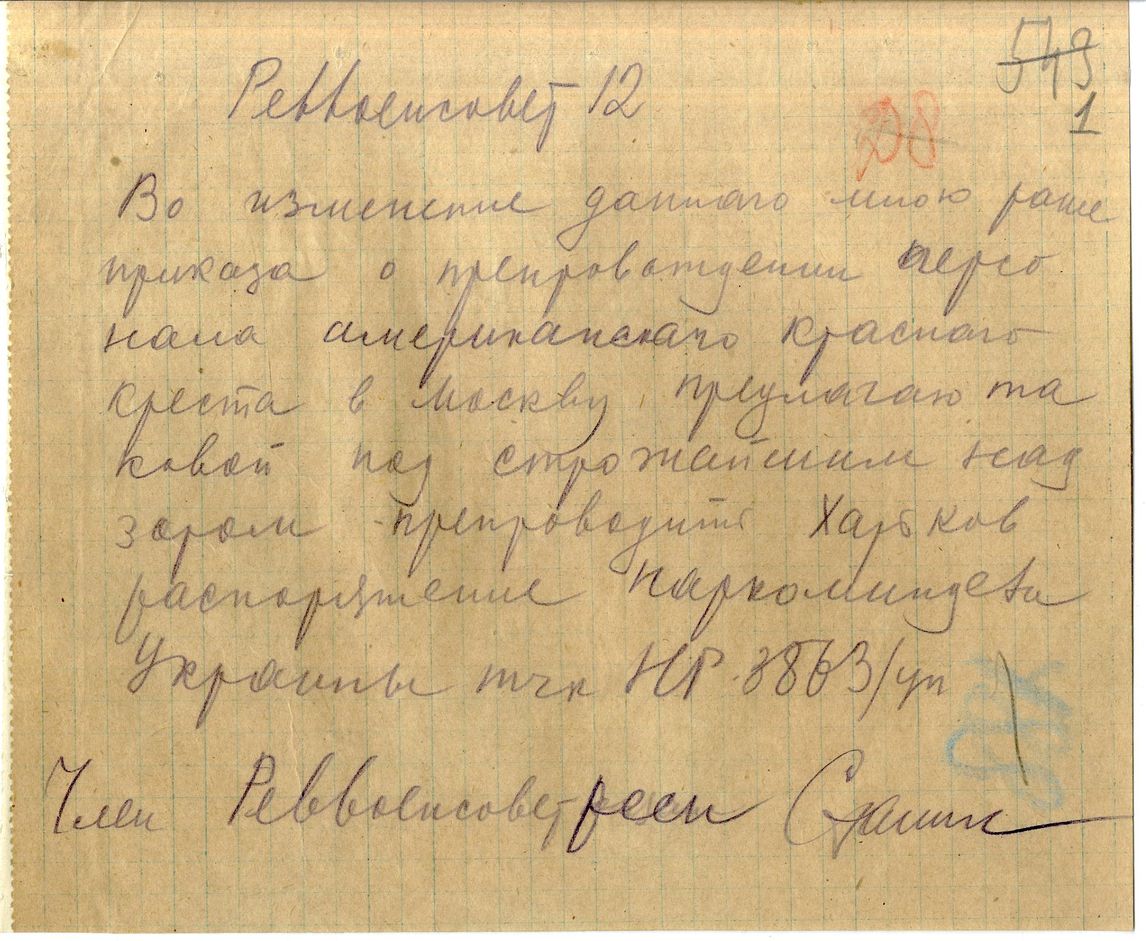 549
1
Реввоенсовет 12
208
Во изменение даннаго мною ранее
приказа о препровождении персо
нала американскаго красного
креста в Москву предлагаю та
ковой под строжайшим над
зором препроводить Харьков
распоряжение Наркоминдела
Украины тчк НР 3863/уп
Член Реввоенсовет Сталин